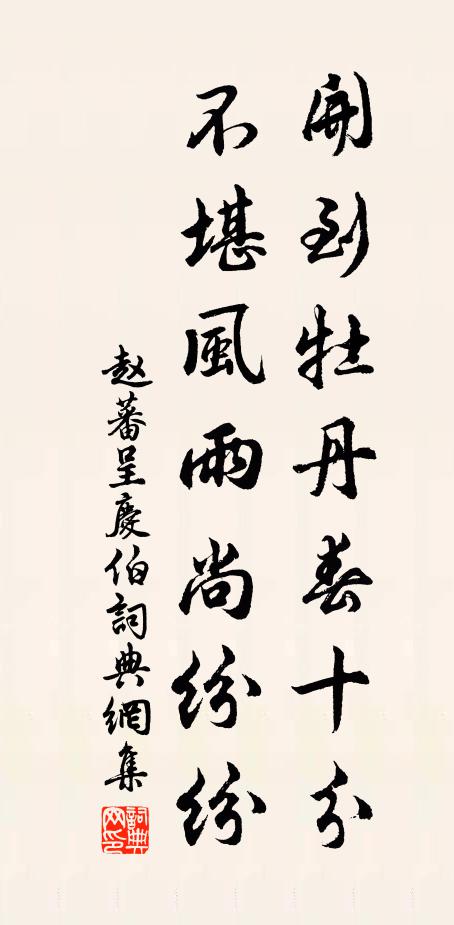 開到牡丹春十分
不堪風雨尚紛紛
赵蕃呈慶伯詞典網集
詞典网印